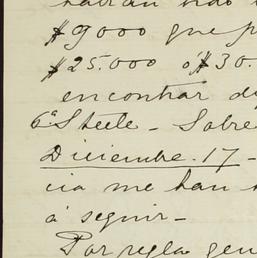 habrán sido
$9000 que p
$25.000 ó $30.
encontrar d
Steele - Sobre
Diciembre. 17 -
cia me han
á seguir -
Por regla gen